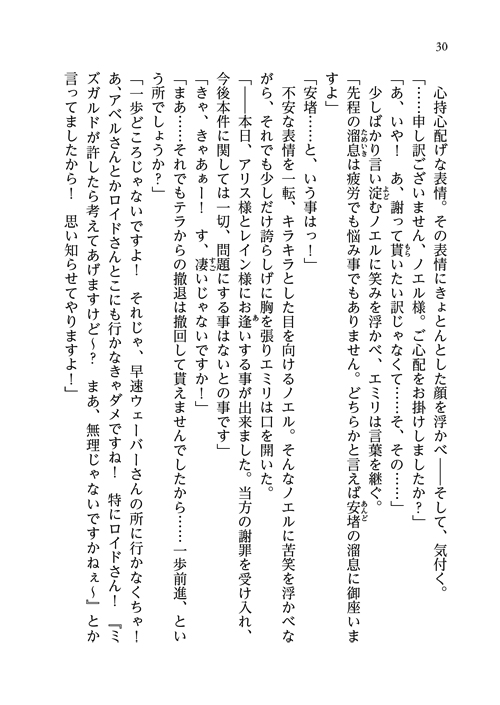 30
心持心配げな表情。その表情にきょとんとした顔を浮かべ――そして、気付く。
「……申し訳ございません、ノエル様。ご心配をお掛けしましたか？」
「あ、いや！　あ、謝って貰いたい訳じゃなくて……そ、その……」
少しばかり言い淀むノエルに笑みを浮かべ、エミリは言葉を継ぐ。
「先程の溜息は疲労でも悩み事でもありません。どちらかと言えば安堵の溜息に御座いま
すよ」
「安堵……と、いう事はっ！」
不安な表情を一転、キラキラとした目を向けるノエル。そんなノエルに苦笑を浮かべな
がら、それでも少しだけ誇らしげに胸を張りエミリは口を開いた。
「――本日、アリス様とレイン様にお逢いする事が出来ました。当方の謝罪を受け入れ、
今後本件に関しては一切、問題にする事はないとの事です」
「きゃ、きゃあぁー！　す、凄いじゃないですか！」
「まあ……それでもテラからの撤退は撤回して貰えませんでしたから……一歩前進、とい
う所でしょうか？」
「一歩どころじゃないですよ！　それじゃ、早速ウェーバーさんの所に行かなくちゃ！
あ、アベルさんとかロイドさんとこにも行かなきゃダメですね！　特にロイドさん！　『ミ
ズガルドが許したら考えてあげますけど～？　まあ、無理じゃないですかねぇ～』とか
言ってましたから！　思い知らせてやりますよ！」